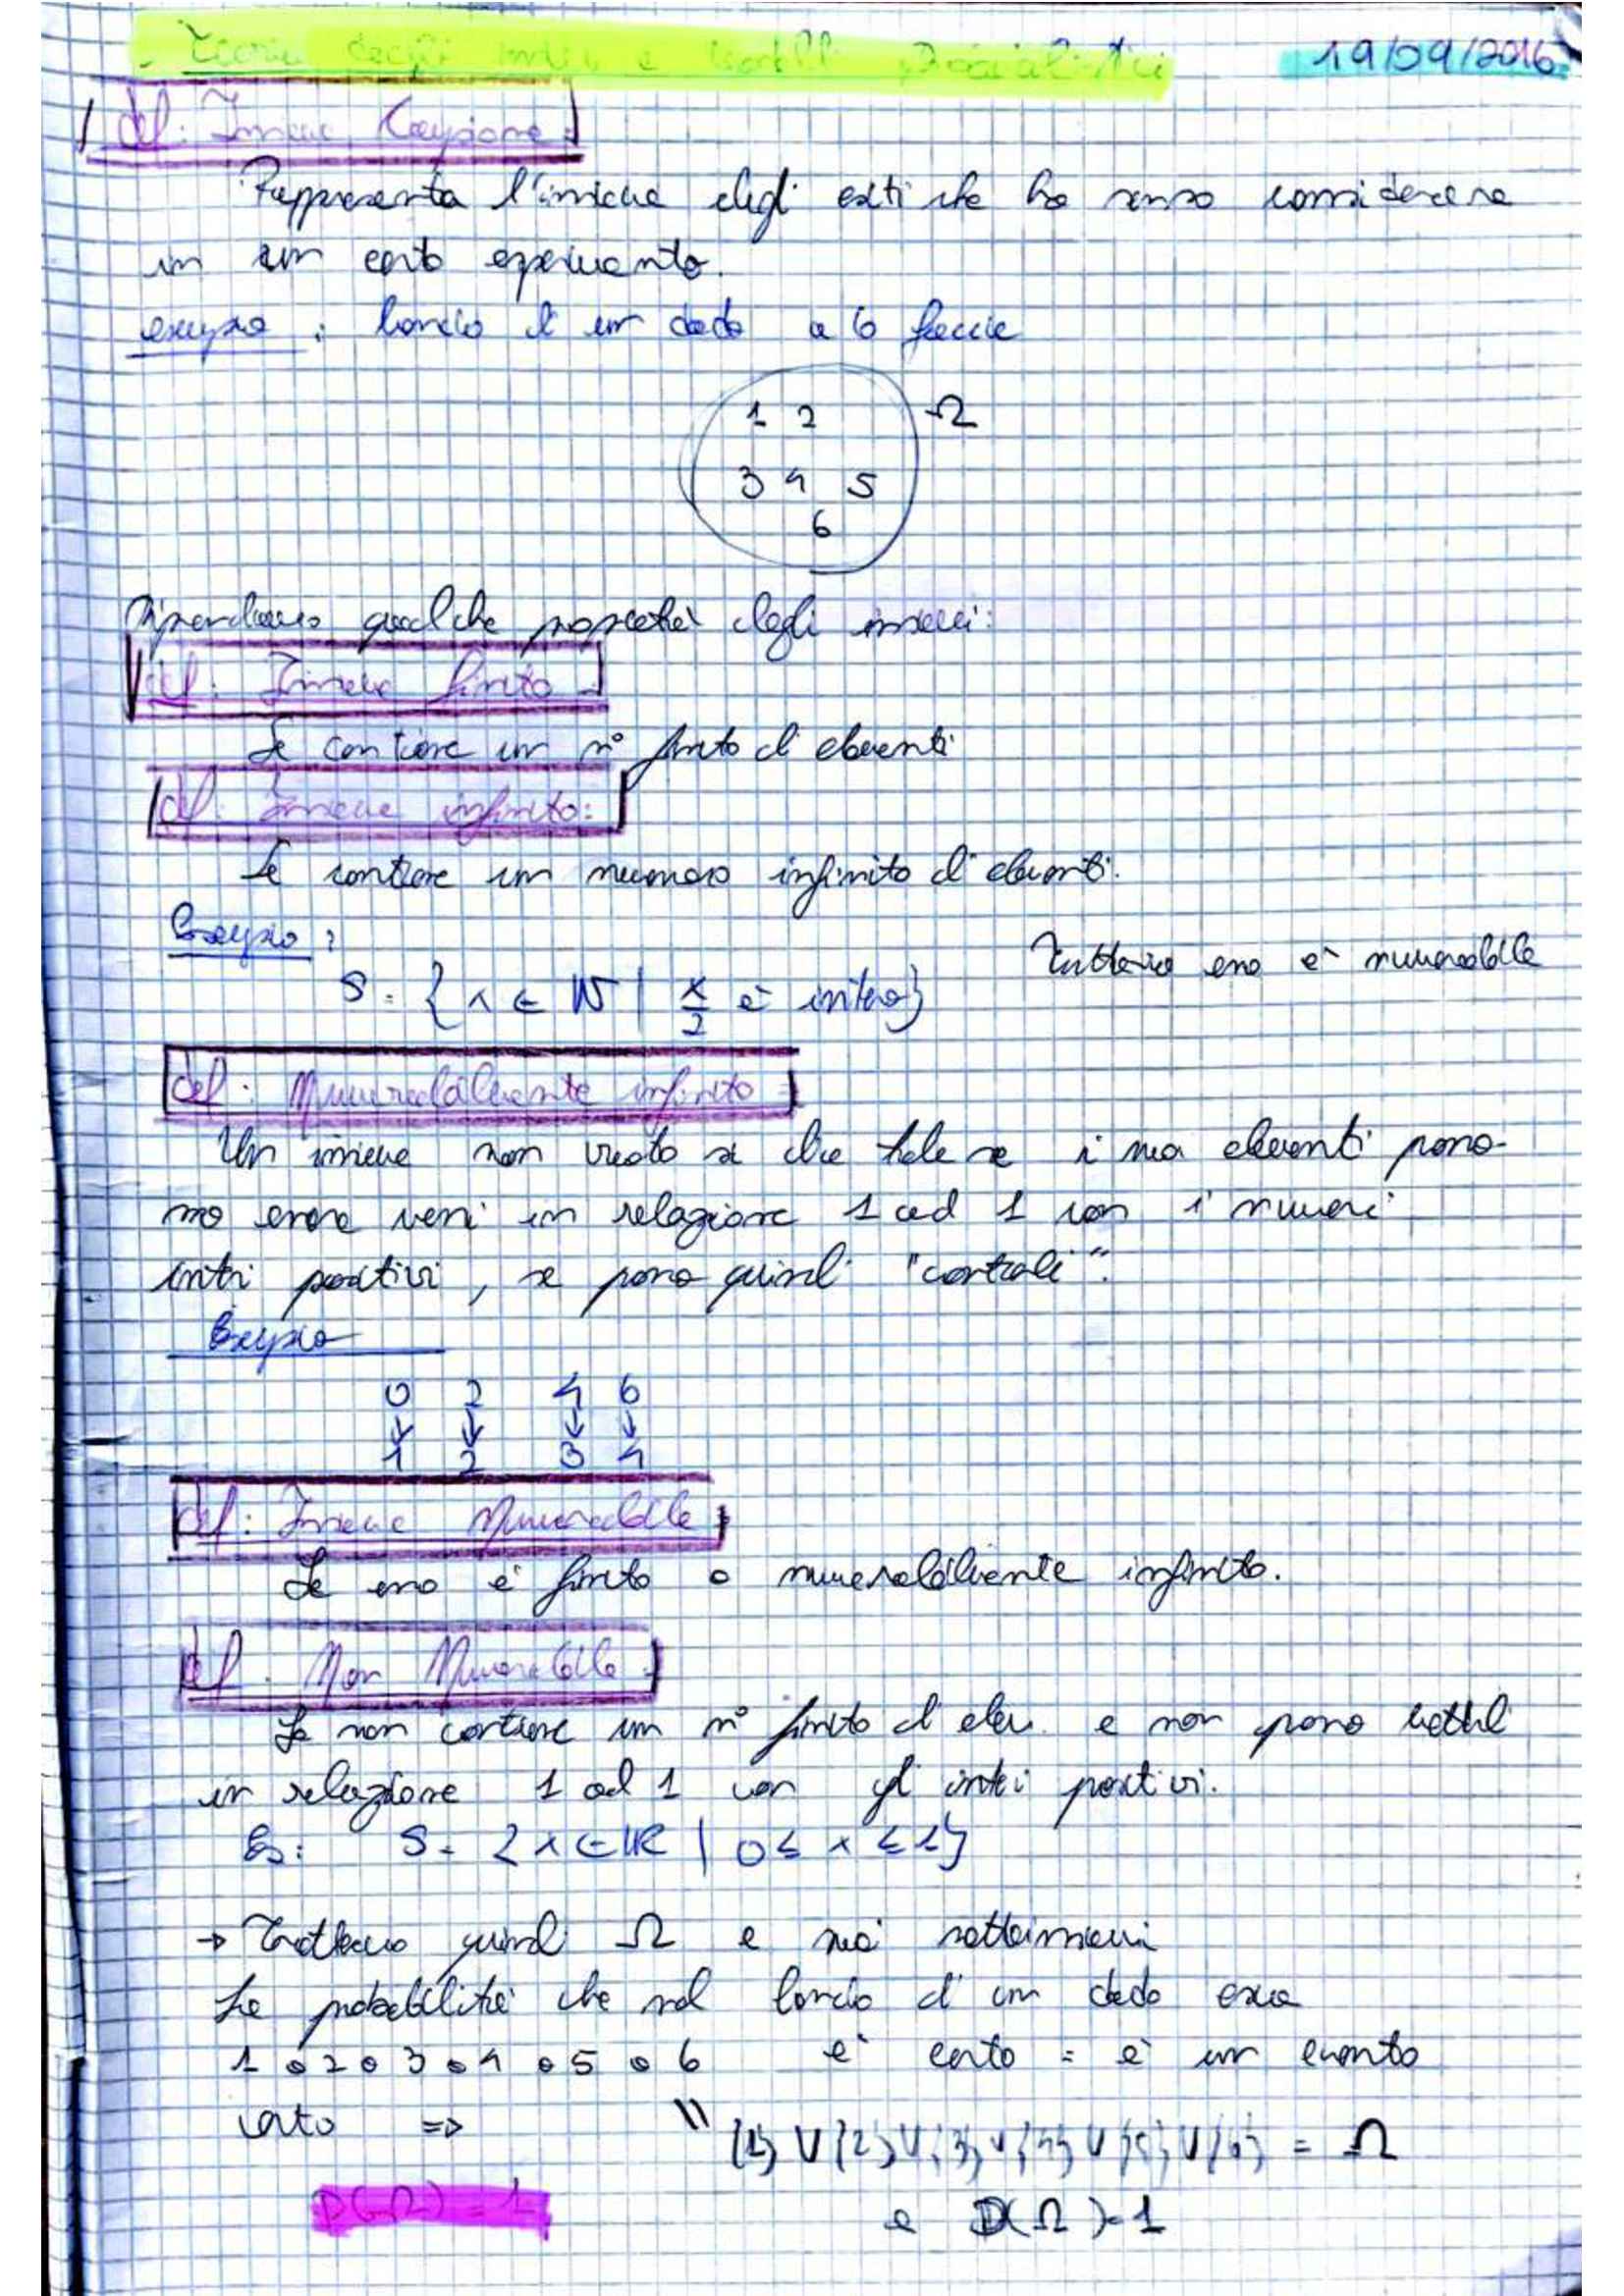 - Teoria degli insiemi e modelli probabilistici 19/09/2016
def: Insieme Campione:
Rappresenta l'insieme degli esiti che ha senso considerare
in un certo esperimento.
esempio: lancio di un dado a 6 faccie
1 2 Ω
3 4 5
6
Riprendiamo qualche proprietà degli insiemi:
def: Insieme finito
Se contiene un n° finito di elementi
def: Insieme infinito:
Se contiene un numero infinito di elementi.
Esempio:
Tuttavia esso è numerabile
S = { x ∈ N | x/2 è intero}
def: Numerabilmente infinito
Un insieme non vuoto si dice tale se i suoi elementi posso-
no essere messi in relazione 1 ad 1 con i numeri
interi positivi, se posso quindi "contarli".
Esempio
0 2 4 6
↓ ↓ ↓ ↓
1 2 3 4
def: Insieme Numerabile
Se esso è finito o numerabilmente infinito.
def. Non Numerabile
Se non contiene un n° finito di elem. e non posso metterli
in relazione 1 ad 1 con gli interi positivi.
Es: S = {x ∈ R | 0 ≤ x ≤ 1}
→ Trattiamo quindi Ω e suoi sottoinsiemi
La probabilità che nel lancio di un dado esca
1 o 2 o 3 o 4 o 5 o 6 è certo = è un evento
certo => " {1} U {2} U {3} U {4} U {5} U {6} = Ω
P(Ω) = 1
e P(Ω) = 1